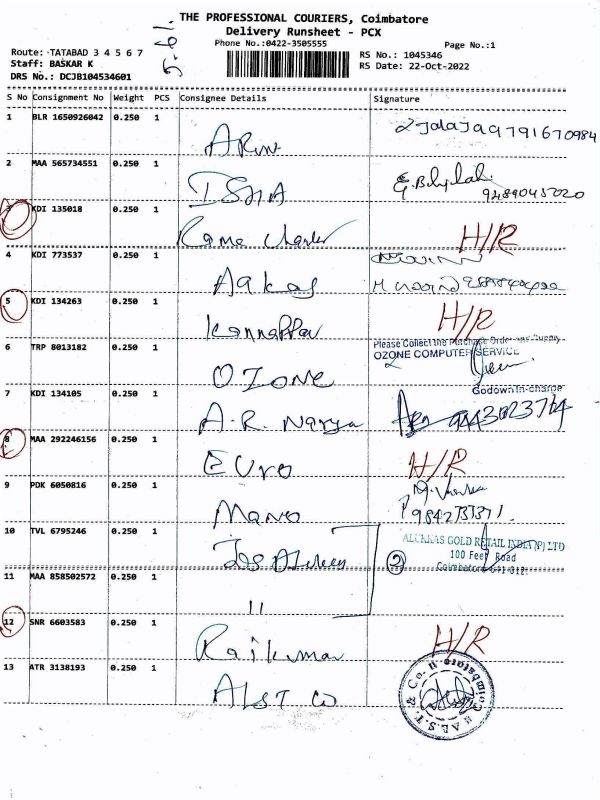 THE PROFESSIONAL COURIERS, Coimbatore
Delivery Runsheet - PCX
Phone No.:0422-3505555
Page No.:1
Route: TATABAD 3 4 5 6 7
Staff: BASKAR K
DRS No.: DCJB104534601
RS No.: 1045346
RS Date: 22-Oct-2022
S No Consignment No Weight PCS Consignee Details Signature
1 BLR 1650926042 0.250 1
2 MAA 565734551 0.250 1 ISHA
3 KDI 135018 0.250 1 H/R
4 KDI 773537 0.250 1 Aakas
5 KDI 134263 0.250 1 Kannappan H/R
6 TRP 8013182 0.250 1 OZONE Please Collect the Purchase Order
OZONE COMPUTER SERVICE
Godown in-charge
7 KDI 134105 0.250 1 A.R. 9443023714
8 MAA 292246156 0.250 1 EURO H/R
9 PDK 6050816 0.250 1 Mano
10 TVL 6795246 0.250 1 2 ALUKKAS GOLD RETAIL INDIA (P) LTD
100 Feet Road
Coimbatore-641 012.
11 MAA 858502572 0.250 1 11
12 SNR 6603583 0.250 1 Rajkumar H/R
13 ATR 3138193 0.250 1